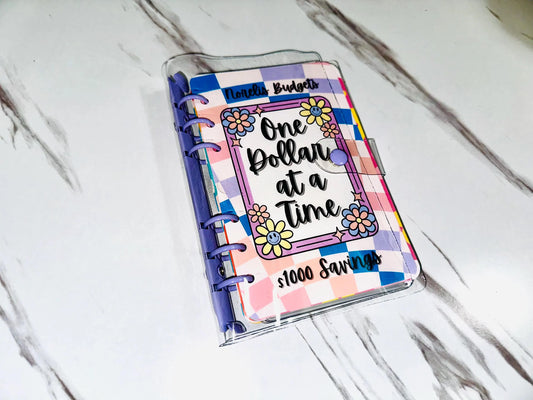 Norelis Budgets
One
Dollar
at a
Time
$1000 Savings